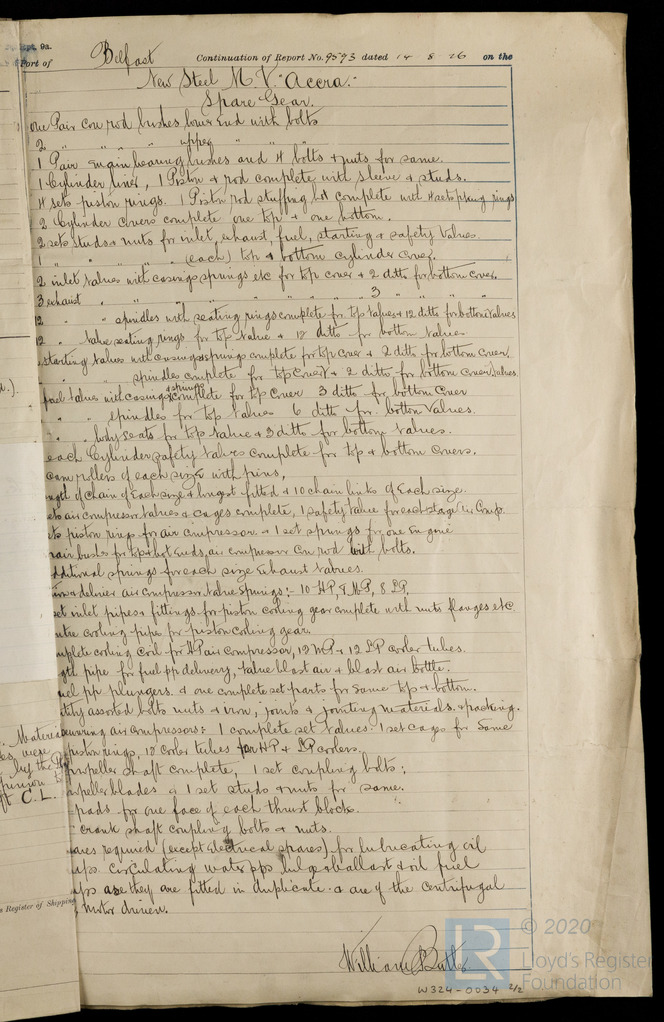 Rpt. 9a.
Port of Belfast Continuation of Report No. 9573 dated 14 8 26 on the
New Steel M.V. "Accra."
Spare Gear.
One Pair Con rod bushes lower end with bolts
2 " " upper " " "
1 Pair main bearing bushes and 4 bolts & nuts for same.
1 Cylinder liner, 1 Piston & rod complete with sleeve & studs.
4 sets piston rings. 1 Piston rod stuffing box complete with 4 sets pkng rings
2 Cylinder covers complete one top & one bottom.
2 sets studs & nuts for inlet, exhaust, fuel, starting & safety Valves.
1 " " " " (each) top & bottom cylinder cover.
2 inlet Valves with casings springs etc for top cover & 2 ditto for bottom cover.
3 exhaust " " " " " " " 3 " " "
12 " " spindles with seating rings complete for top Valves & 12 ditto for bottom Valves
12 " Valve seating rings for top Valve & 12 ditto for bottom Valves.
starting Valves with casings & springs complete for top cover & 2 ditto for bottom cover.
" " spindles complete for top cover & 2 ditto for bottom cover Valves.
fuel Valves with casings & springs complete for top cover 3 ditto for bottom cover
" " spindles for top Valves 6 ditto for bottom Valves.
" " body seats for top Valve & 3 ditto for bottom Valves.
each Cylinder safety Valves complete for top & bottom covers.
cam rollers of each size with pins,
length of chain of each size & longest fitted & 10 chain links of each size.
sets air compressor Valves & cages complete, 1 safety Valve for each stage in Comp.
sets piston rings for air compressor & 1 set springs for one Engine
pair bushes for top & bot Ends, air compressor Con rod with bolts.
additional springs for each size Exhaust Valves.
& deliver air compressor Valve springs:- 10 HP, 8 MP, 8 LP.
set inlet pipes & fittings for piston cooling gear complete with nuts flanges etc
cooling pipe for piston cooling gear.
complete cooling coil for HP air compressor, 12 MP & 12 LP cooler tubes.
length pipe for fuel pp delivery, Valve blast air & blast air bottle.
fuel pp plungers. & one complete set parts for same top & bottom.
assorted bolts nuts & iron, joints & jointing materials & packing.
air compressors: 1 complete set Valves. 1 set cages for same
piston rings, 12 cooler tubes for HP & LP coolers.
propeller shaft complete, 1 set coupling bolts:
propeller blades & 1 set studs & nuts for same.
pads for one face of each thrust block.
crank shaft coupling bolts & nuts.
required (except electrical spares) for lubricating oil
circulating water pps bilge & ballast & oil fuel
as they are fitted in duplicate & are of the centrifugal
& motor driven.
William Butler
d.).
Material
were
by the
opinion
C.L.
s Register of Shipping
W324-0034 2/2
LR
© 2020
Lloyd's Register
Foundation